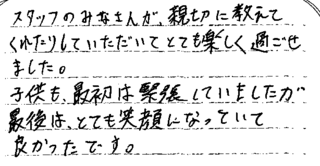 スタッフのみなさんが、親切に教えて
くれたりしていただいてとても楽しく過ごせ
ました。
子供も、最初は緊張していましたが
最後は、とても笑顔になっていて
良かったです。